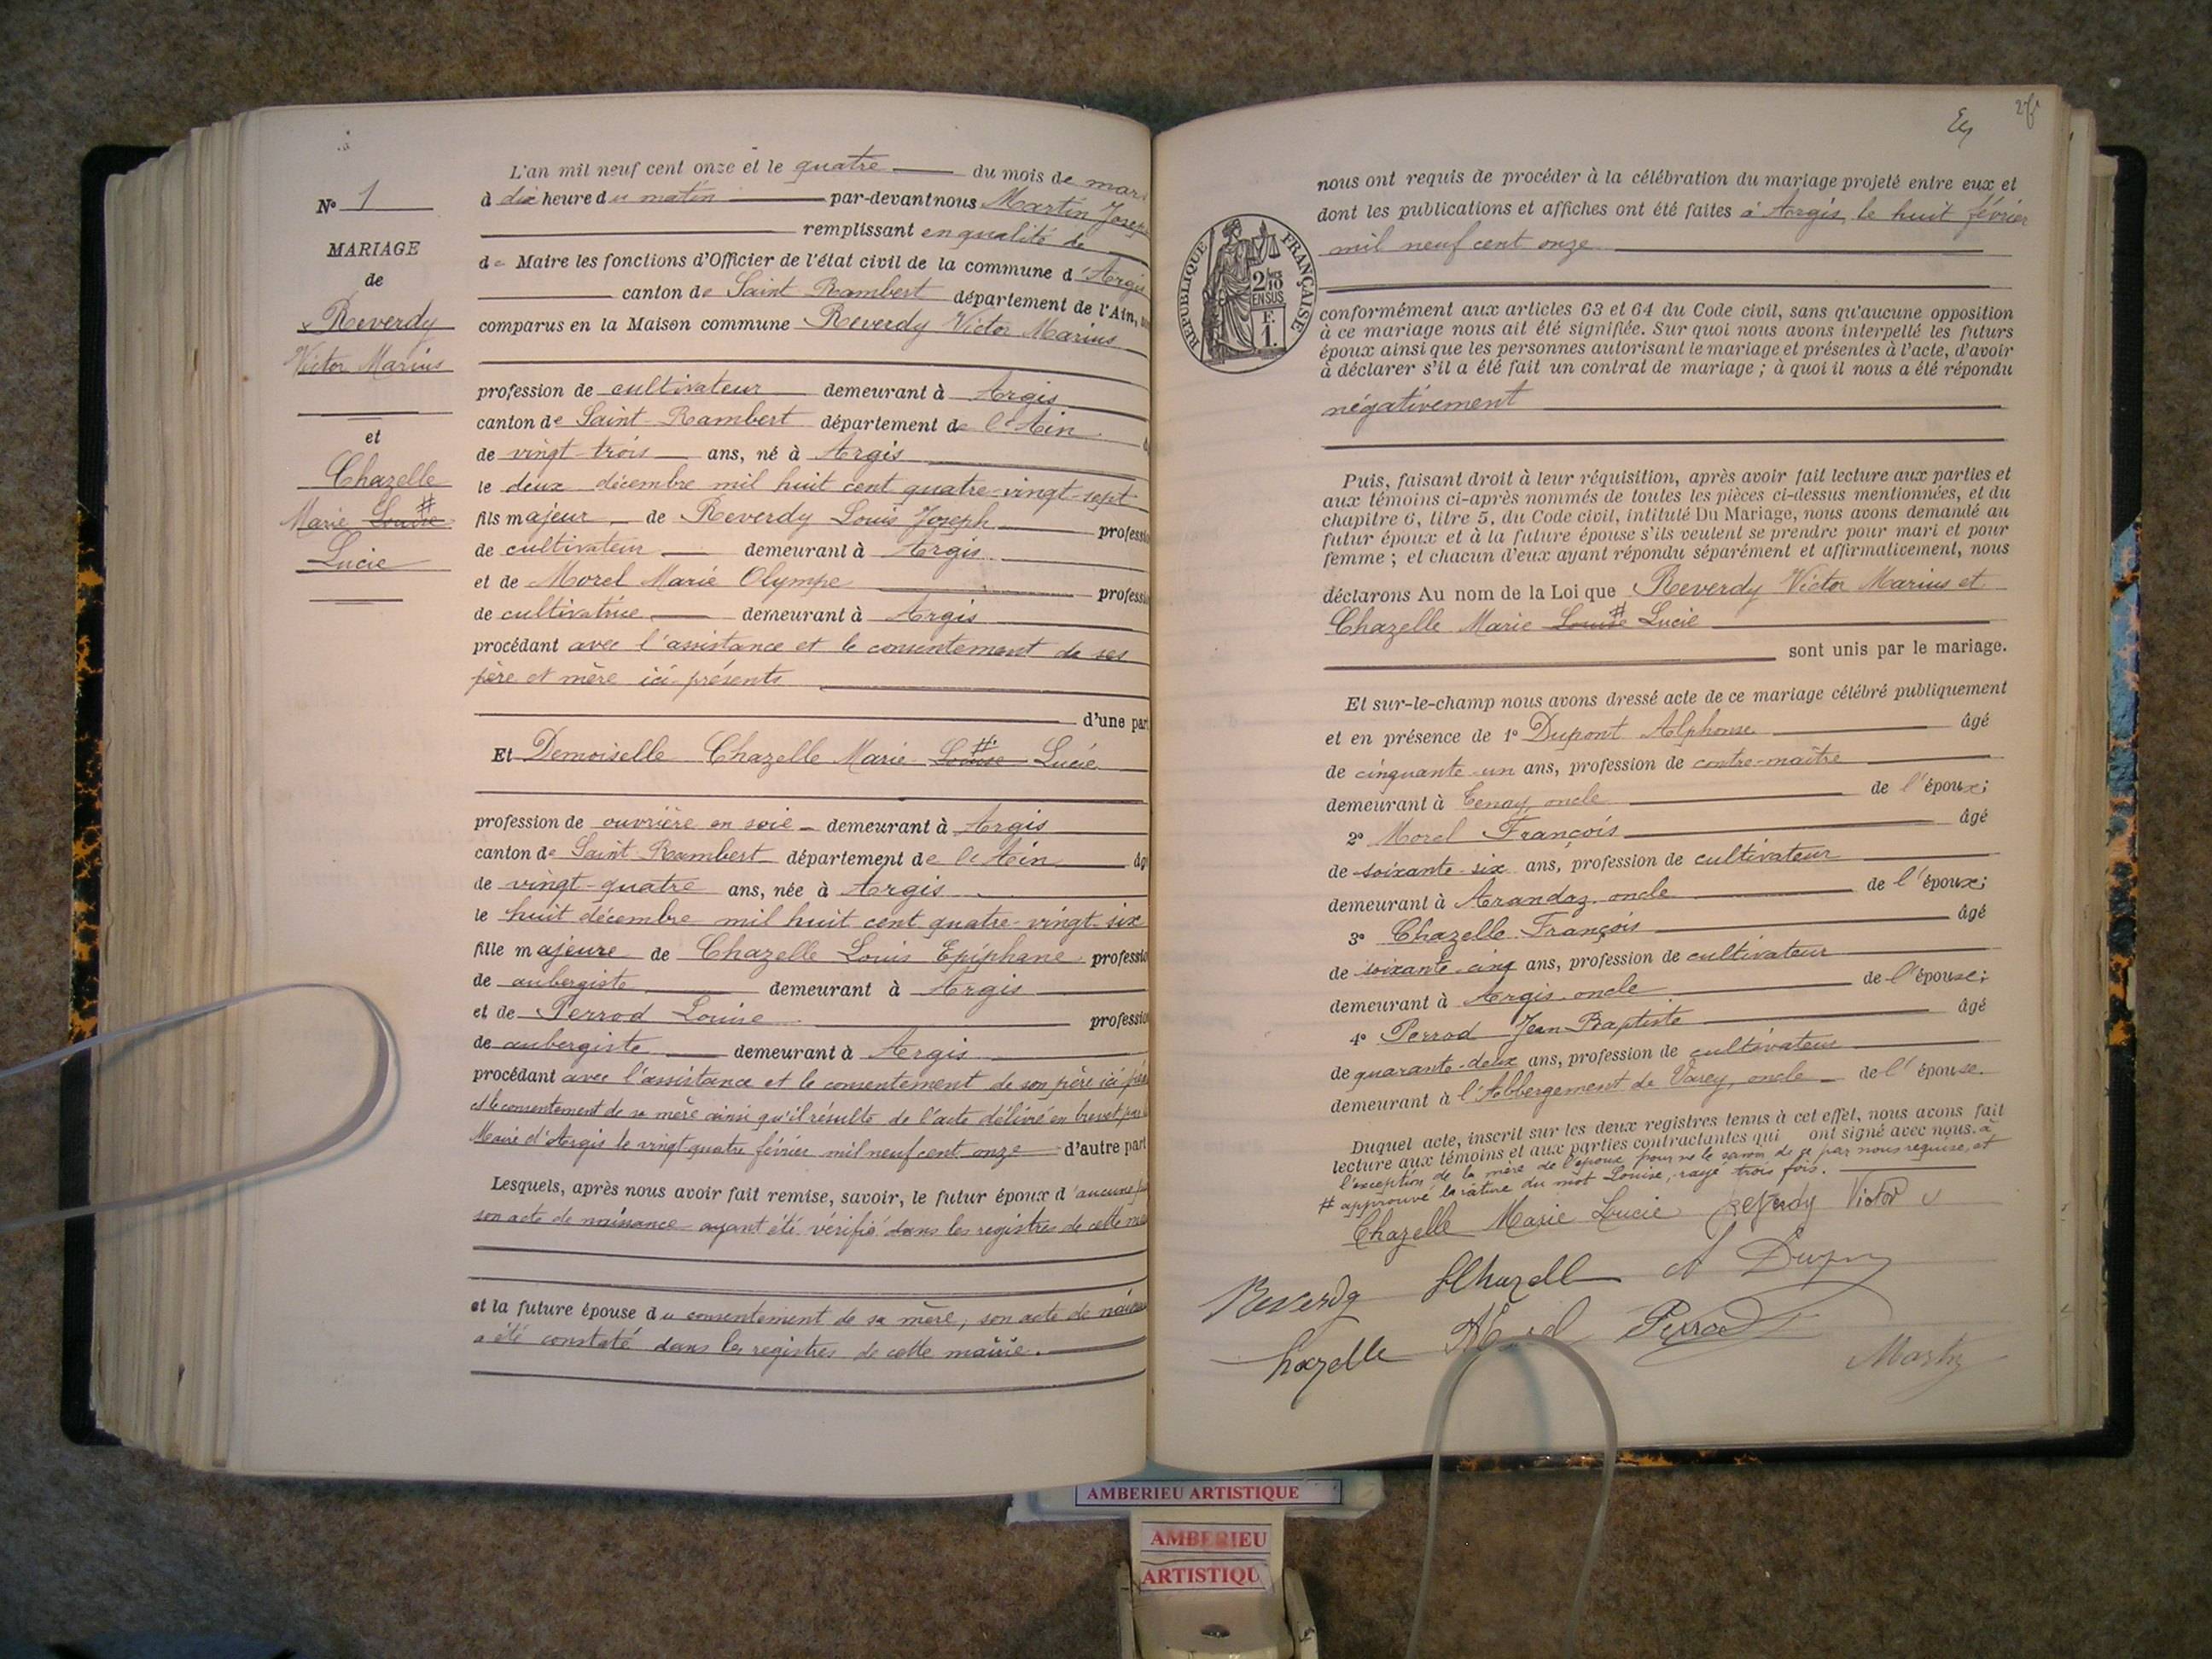 N° 1
MARIAGE
de
Reverdy
Victor Marius
et
Chazelle
Marie Louise #
Lucie
L'an mil neuf cent onze et le quatre du mois de mars
à dix heure du matin par-devant nous Martin Joseph
remplissant en qualité de
de Maire les fonctions d'Officier de l'état civil de la commune d'Argis
canton de Saint-Rambert département de l'Ain,
comparus en la Maison commune Reverdy Victor Marius
profession de cultivateur demeurant à Argis
canton de Saint-Rambert département de l'Ain
de vingt-trois ans, né à Argis
le deux décembre mil huit cent quatre-vingt-sept
fils majeur de Reverdy Louis Joseph professi
de cultivateur demeurant à Argis
et de Morel Marie Olympe professi
de cultivatrice demeurant à Argis
procédant avec l'assistance et le consentement de ses
père et mère ici présents
d'une par
Et Demoiselle Chazelle Marie Louise # Lucie
profession de ouvrière en soie demeurant à Argis
canton de Saint-Rambert département de l'Ain âg
de vingt-quatre ans, née à Argis
le huit décembre mil huit cent quatre-vingt-six
fille majeure de Chazelle Louis Epiphane professio
de aubergiste demeurant à Argis
et de Perrod Louise professio
de aubergiste demeurant à Argis
procédant avec l'assistance et le consentement de son père ici
et le consentement de sa mère ainsi qu'il résulte de l'acte délivré en brevet par
Maire d'Argis le vingt quatre février mil neuf cent onze d'autre part
Lesquels, après nous avoir fait remise, savoir, le futur époux d'aucune
son acte de naissance ayant été vérifié dans les registres de cette
et la future épouse du consentement de sa mère, son acte de
a été constaté dans les registres de cette mairie.
REPUBLIQUE FRANÇAISE
2/10 EN SUS
F. 1.
nous ont requis de procéder à la célébration du mariage projeté entre eux et
dont les publications et affiches ont été faites à Argis, le huit février
mil neuf cent onze
conformément aux articles 63 et 64 du Code civil, sans qu'aucune opposition
à ce mariage nous ait été signifiée. Sur quoi nous avons interpellé les futurs
époux ainsi que les personnes autorisant le mariage et présentes à l'acte, d'avoir
à déclarer s'il a été fait un contrat de mariage ; à quoi il nous a été répondu
négativement
Puis, faisant droit à leur réquisition, après avoir fait lecture aux parties et
aux témoins ci-après nommés de toutes les pièces ci-dessus mentionnées, et du
chapitre 6, titre 5, du Code civil, intitulé Du Mariage, nous avons demandé au
futur époux et à la future épouse s'ils veulent se prendre pour mari et pour
femme ; et chacun d'eux ayant répondu séparément et affirmativement, nous
déclarons Au nom de la Loi que Reverdy Victor Marius et
Chazelle Marie Louise # Lucie
sont unis par le mariage.
Et sur-le-champ nous avons dressé acte de ce mariage célébré publiquement
et en présence de 1° Dupont Alphonse âgé
de cinquante-un ans, profession de contre-maître
demeurant à Tenay, oncle de l'époux;
2° Morel François âgé
de soixante-six ans, profession de cultivateur
demeurant à Arandaz, oncle de l'époux;
3° Chazelle François âgé
de soixante-cinq ans, profession de cultivateur
demeurant à Argis, oncle de l'épouse;
4° Perrod Jean Baptiste âgé
de quarante-deux ans, profession de cultivateur
demeurant à l'Abbergement de Varey, oncle de l'épouse.
Duquel acte, inscrit sur les deux registres tenus à cet effet, nous avons fait
lecture aux témoins et aux parties contractantes qui ont signé avec nous, à
l'exception de la mère de l'époux pour ne le savoir, de ce par nous requise, et
# approuvé la rature du mot Louise, rayé trois fois.
Chazelle Marie Lucie Reverdy Victor
Reverdy Chazelle A Dupont
Chazelle Morel Perrod
Martin
AMBERIEU ARTISTIQUE
AMBERIEU
ARTISTIQU